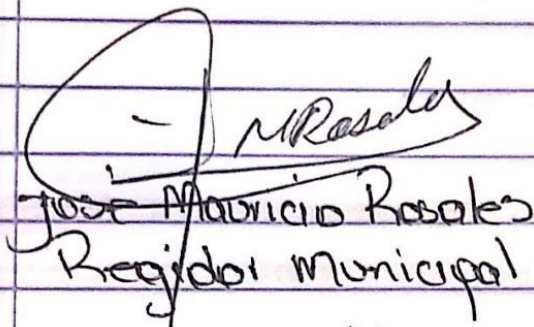 MRosales
José Mauricio Rosales
Regidor Municipal